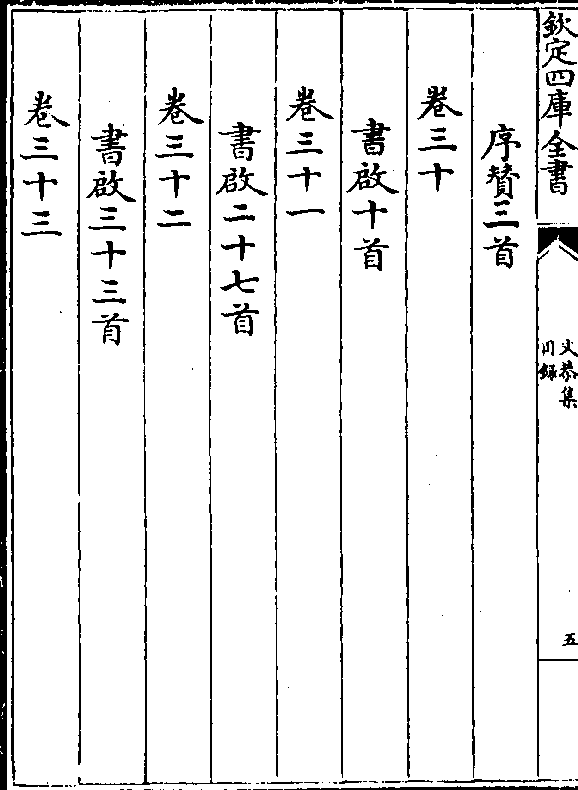 欽定四庫全書
文恭集
目録
五
序賛三首
卷三十
書啟十首
卷三十一
書啟二十七首
卷三十二
書啟三十三首
卷三十三